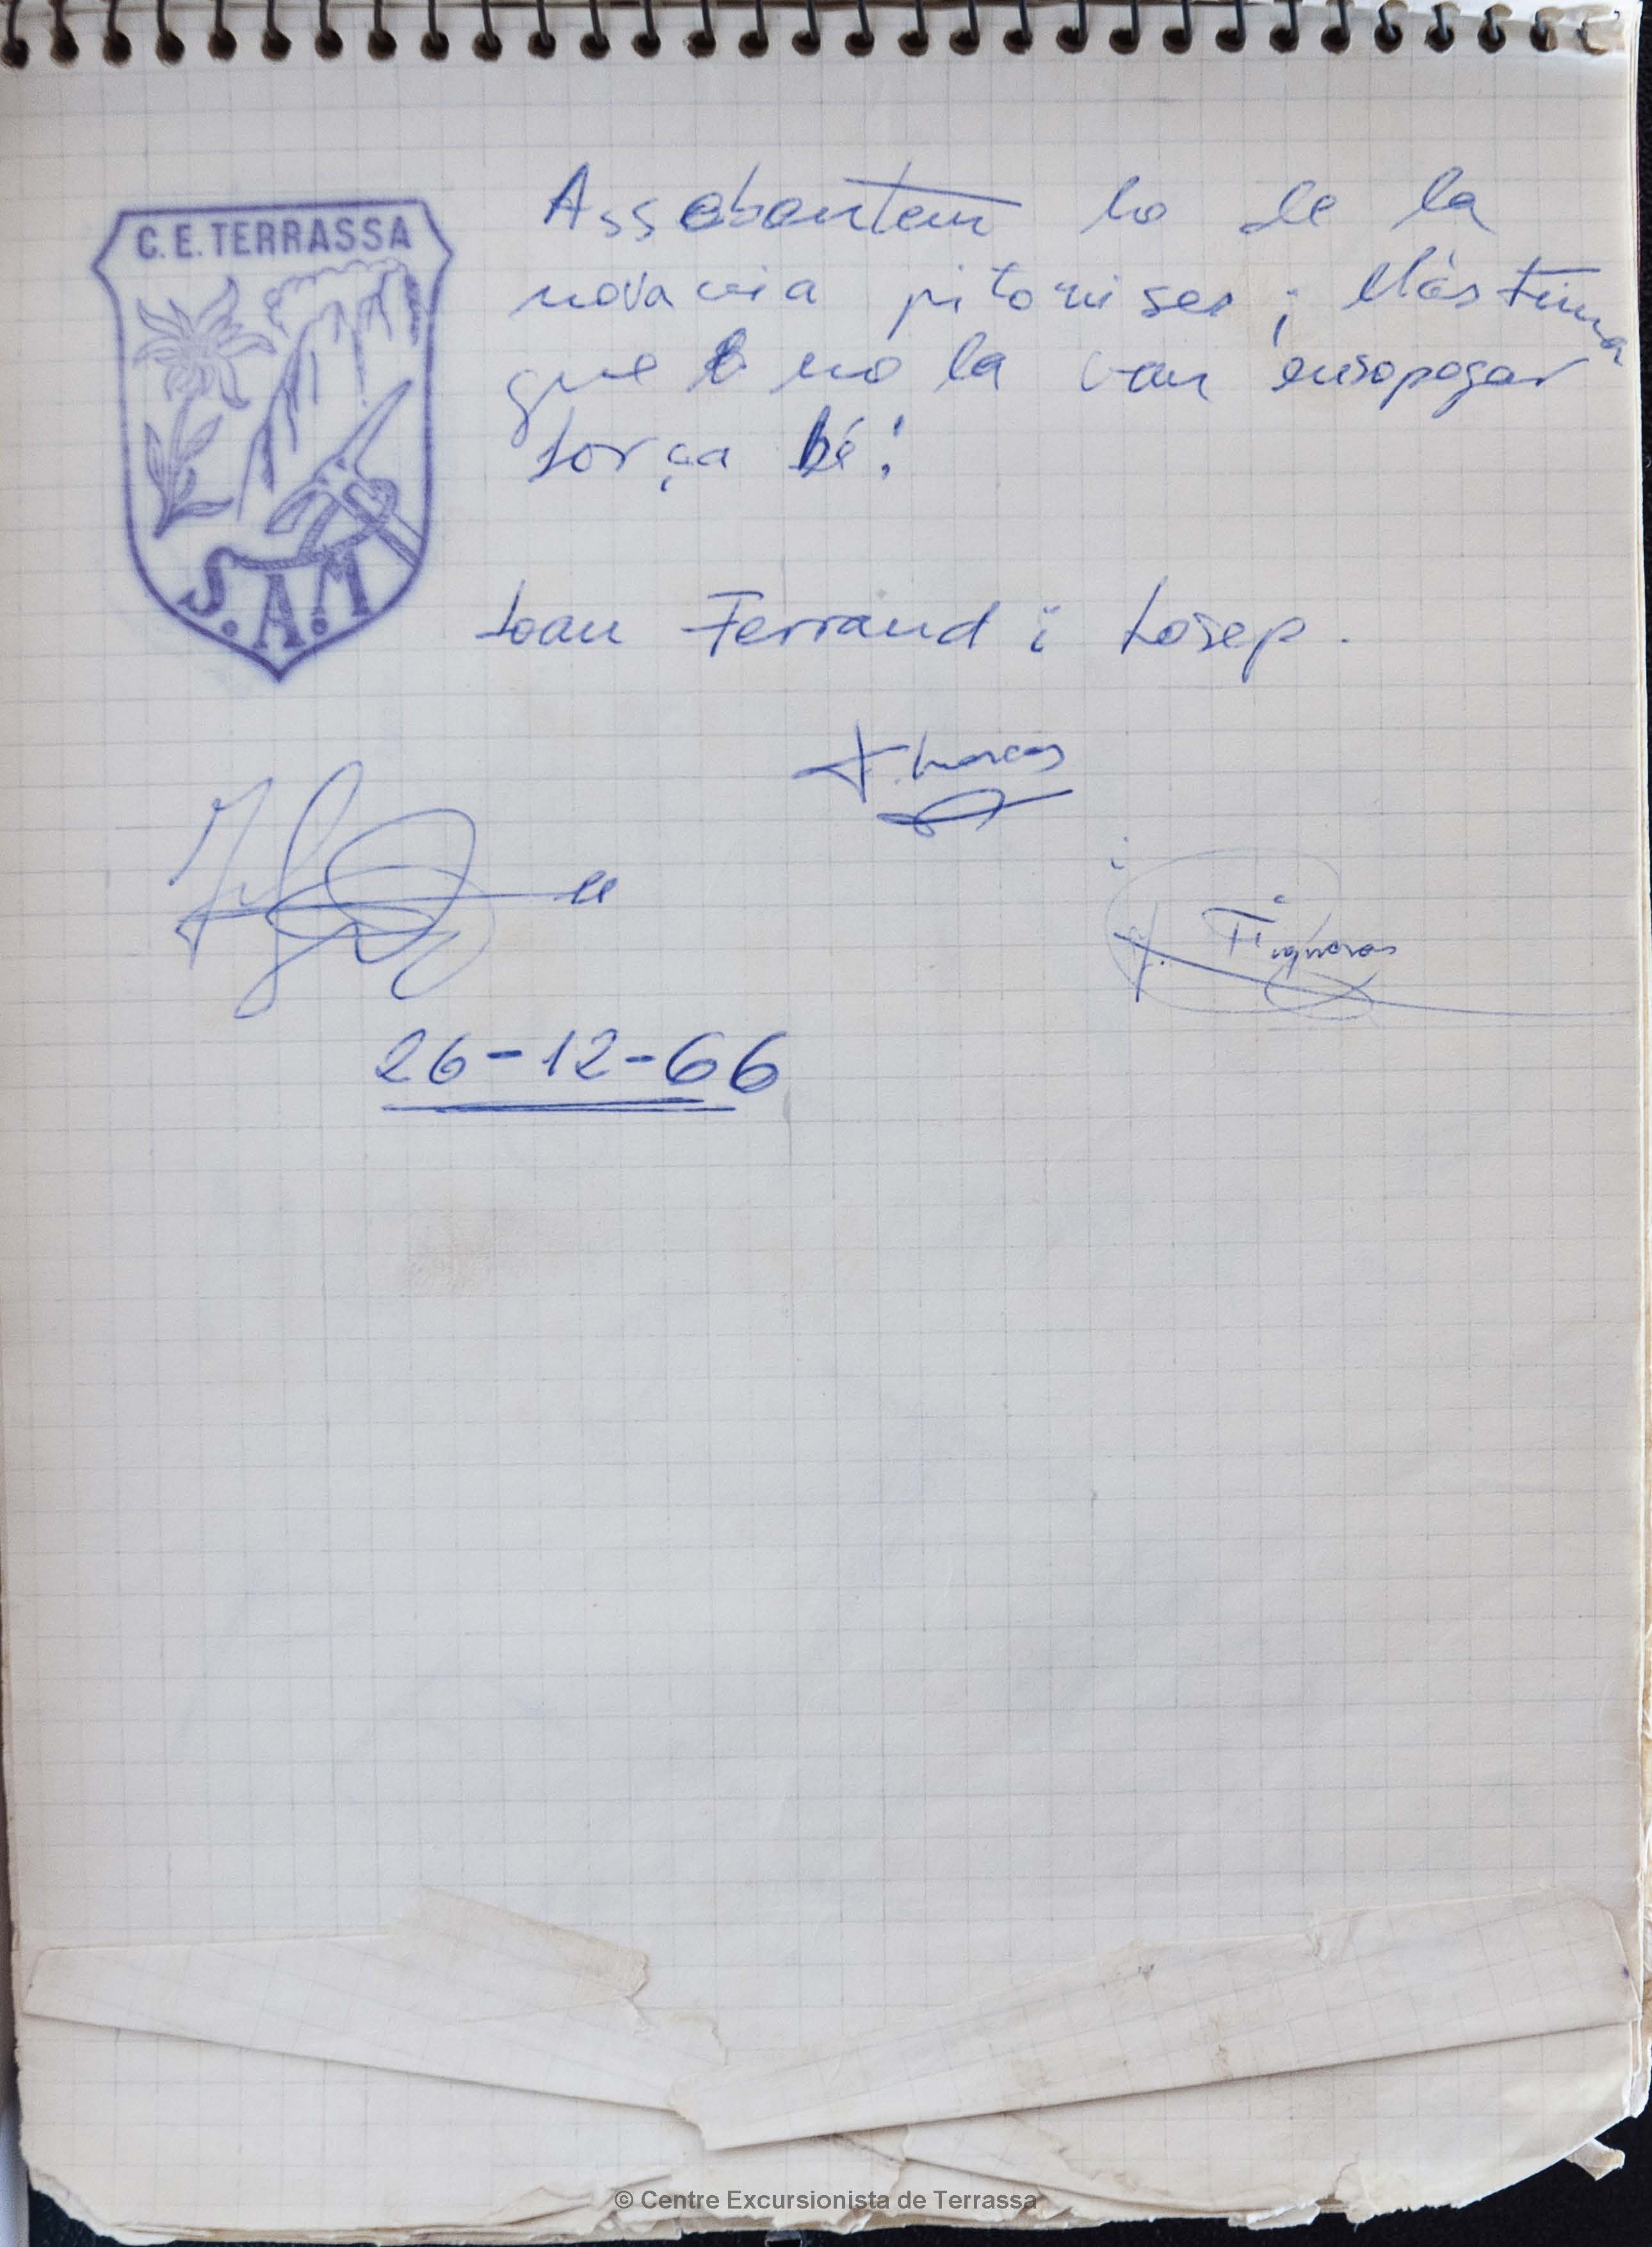 C. E. TERRASSA
S.A.M
Assabentem ho de la
nova via pitonisea; llàstima
que no la van ensopegar
força bé!
Joan Ferrand i Josep.
F. Marcos
J. Figueras
26-12-66
© Centre Excursionista de Terrassa